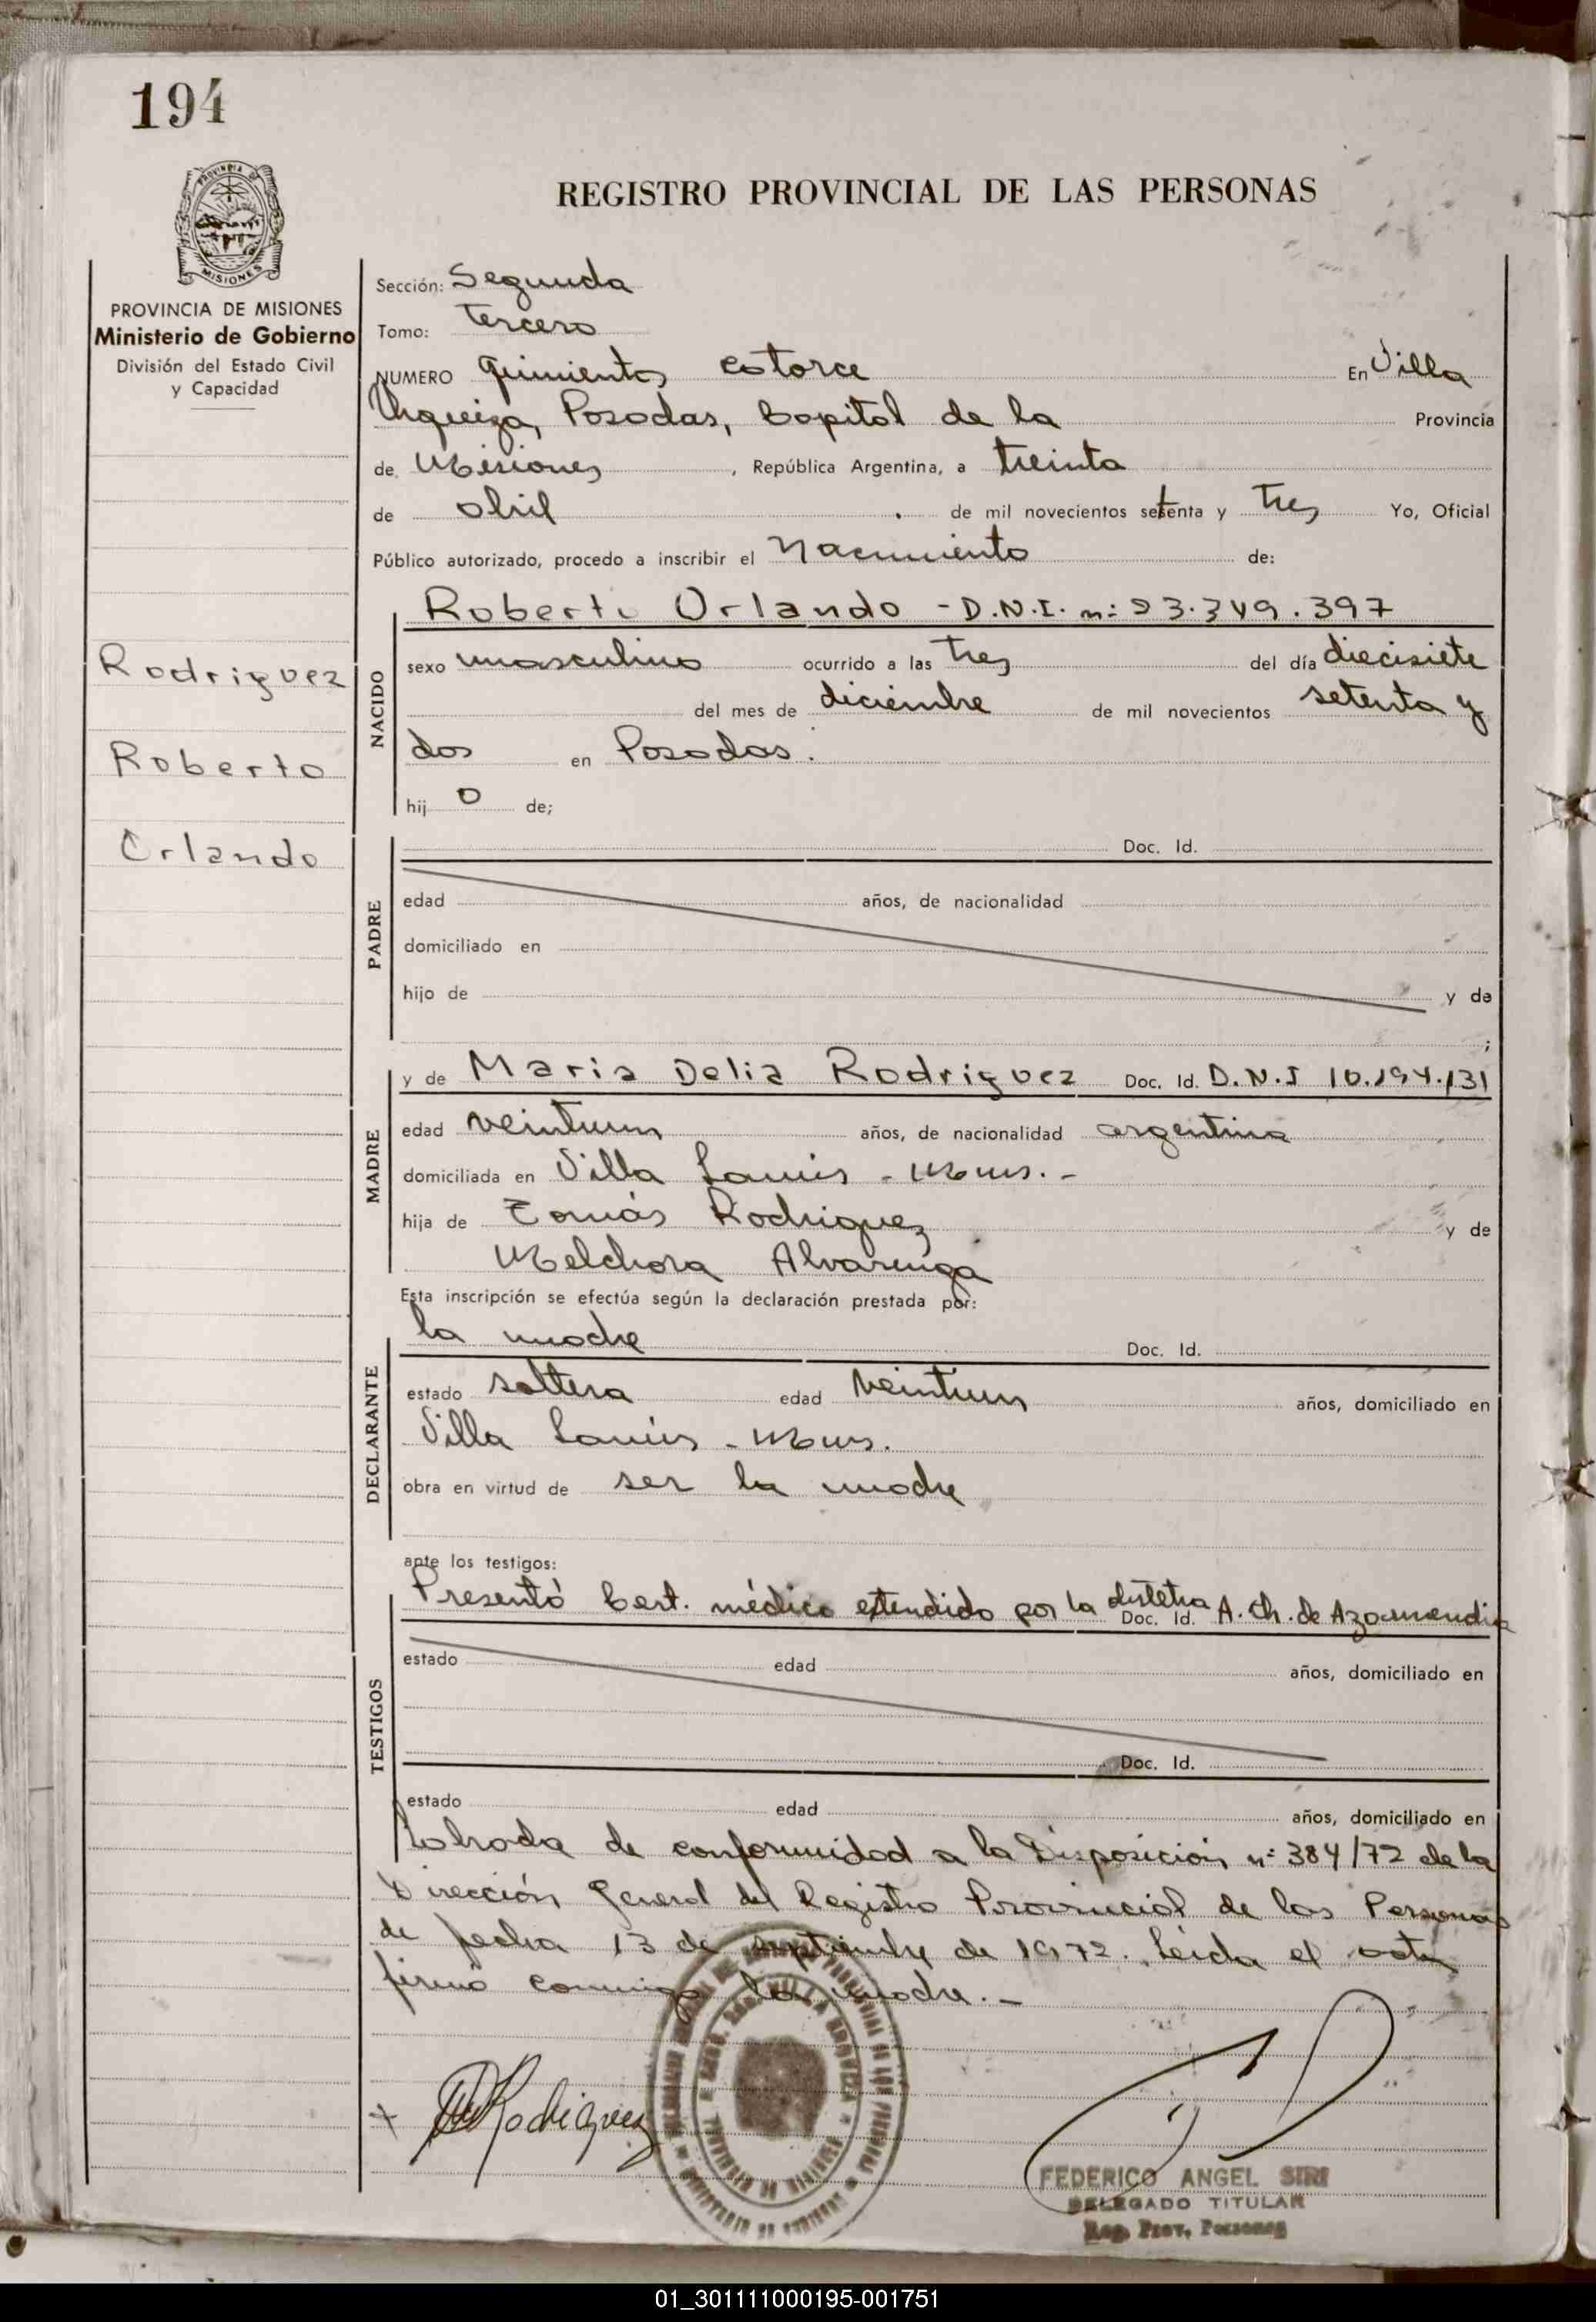 194
PROVINCIA DE
MISIONES
REGISTRO PROVINCIAL DE LAS PERSONAS
PROVINCIA DE MISIONES
Ministerio de Gobierno
División del Estado Civil
y Capacidad
Rodriguez
Roberto
Orlando
Sección: Segunda
Tomo: Tercero
NUMERO quinientos catorce En Villa
Urquiza, Posadas, Capital de la Provincia
de Misiones, República Argentina, a treinta
de abril de mil novecientos setenta y tres Yo, Oficial
Público autorizado, procedo a inscribir el Nacimiento de:
NACIDO
Roberto Orlando - D.N.I. n: 23.349.397
sexo masculino ocurrido a las tres del día diecisiete
del mes de diciembre de mil novecientos setenta y
dos en Posadas.
hij o de;
PADRE
Doc. Id.
edad años, de nacionalidad
domiciliado en
hijo de y de
;
MADRE
y de Maria Delia Rodriguez Doc. Id. D.N.I 10.194.131
edad veintiun años, de nacionalidad argentina
domiciliada en Villa Lanús - Mnes. -
hija de Tomás Rodriguez y de
Melchora Alvarenga
Esta inscripción se efectúa según la declaración prestada por:
DECLARANTE
la madre Doc. Id.
estado soltera edad veintiun años, domiciliado en
Villa Lanús - Mnes.
obra en virtud de ser la madre
ante los testigos:
TESTIGOS
Presentó Cert. médico extendido por la Doc. Id. A. Ch. de Azamendia
estado edad años, domiciliado en
Doc. Id.
estado edad años, domiciliado en
Labrada de conformidad a la Disposición n: 384/72 de la
Dirección General del Registro Provincial de las Personas
de fecha 13 de septiembre de 1972. Leida el acta
firma conmigo la madre. -
Rodriguez
FEDERICO ANGEL SIRI
DELEGADO TITULAR
Reg. Prov. Personas
01_301111000195-001751